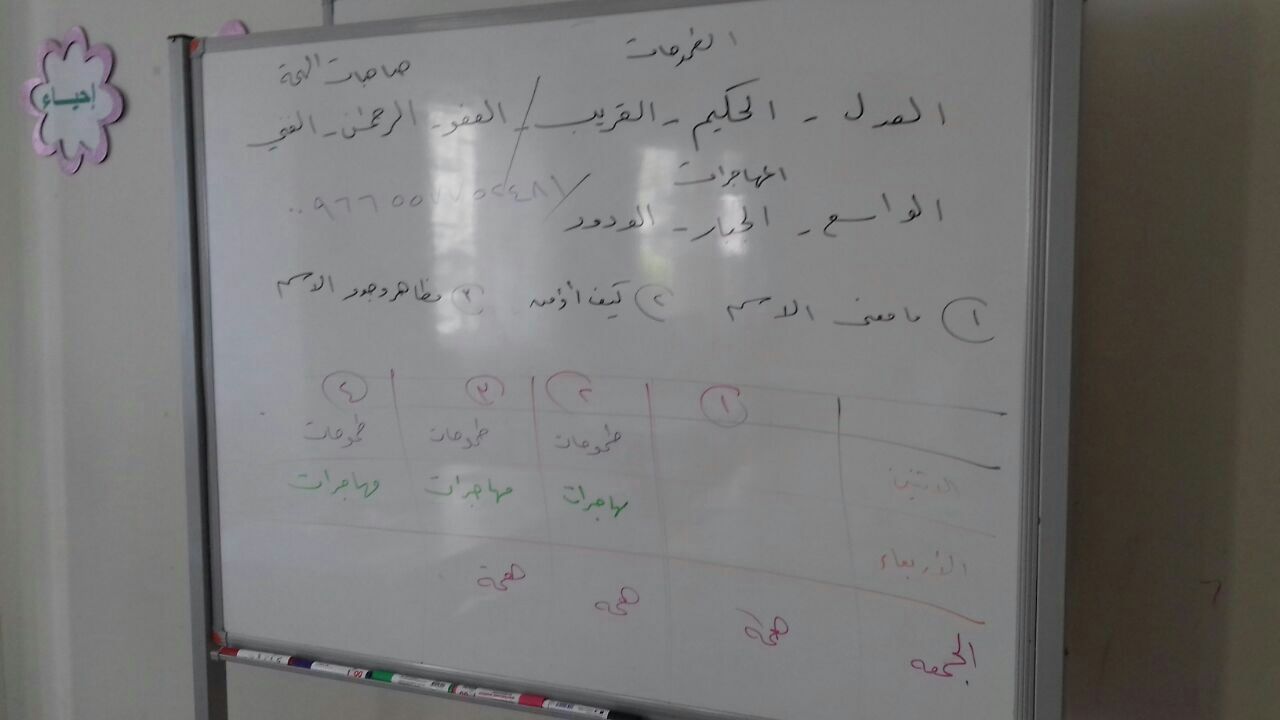 إحياء
الطموحات
صاحبات الهمة
العدل - الحكيم - القريب / العفو - الرحمن - الغني
المهاجرات
الواسع - الجبار - الودود
١ ما معنى الاسم ٢ كيف أؤمن ٣ مظاهر وجود الاسم
١ ٢ ٣ ٤
الاثنين طموحات طموحات طموحات
مهاجرات مهاجرات مهاجرات
الأربعاء
الجمعة همة همة همة